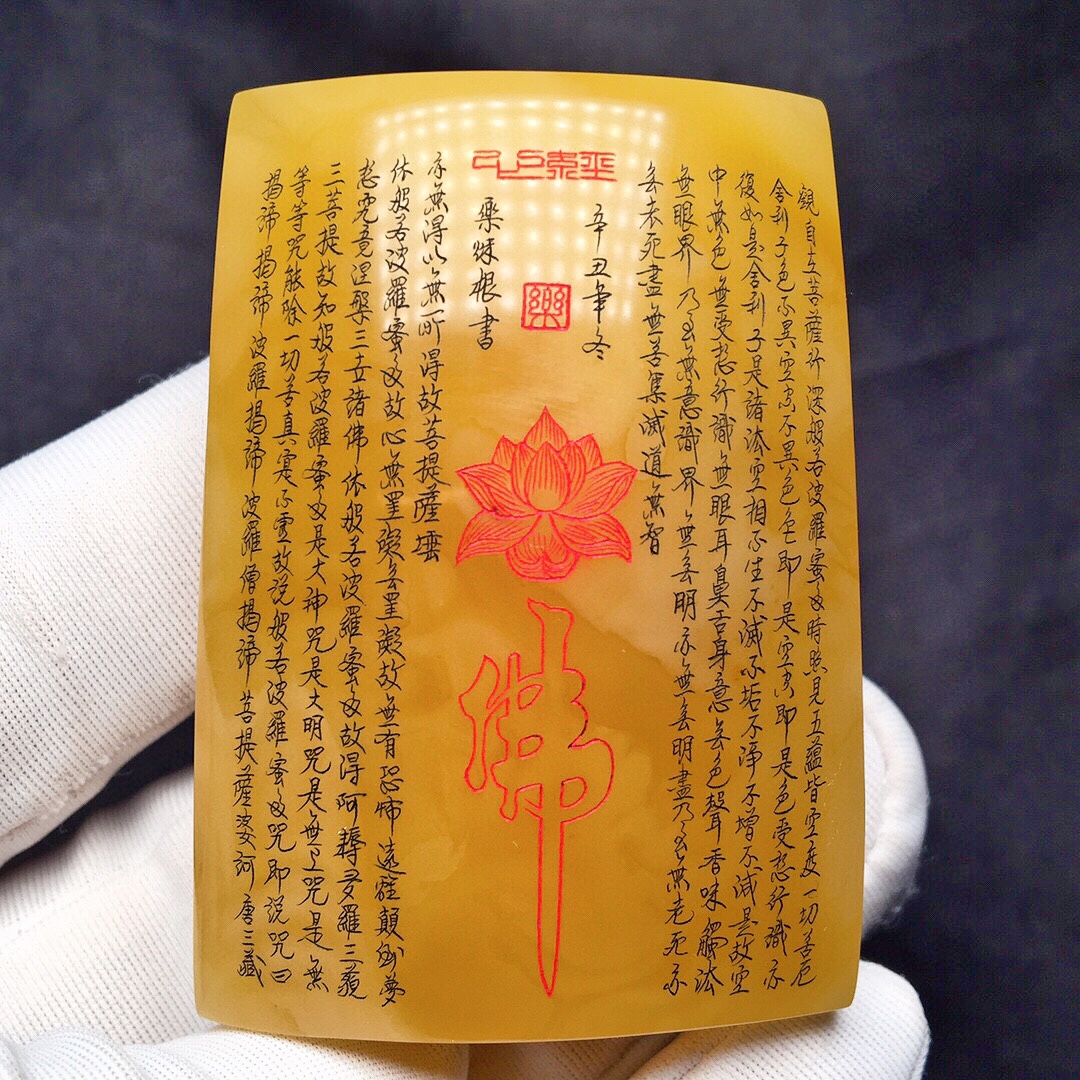 觀自在菩薩行深般若波羅蜜多時照見五蘊皆空度一切苦厄
舍利子色不異空空不異色色即是空空即是色受想行識亦
復如是舍利子是諸法空相不生不滅不垢不淨不增不減是故空
中無色無受想行識無眼耳鼻舌身意無色聲香味觸法
無眼界乃至無意識界無無明亦無無明盡乃至無老死亦
無老死盡無苦集滅道無智
辛丑年冬
樂
佛
樂根書
亦無得以無所得故菩提薩埵
依般若波羅蜜多故心無罣礙無罣礙故無有恐怖遠離顛倒夢
想究竟涅槃三世諸佛依般若波羅蜜多故得阿耨多羅三藐
三菩提故知般若波羅蜜多是大神咒是大明咒是無上咒是無
等等咒能除一切苦真實不虛故說般若波羅蜜多咒即說咒曰
揭諦揭諦波羅揭諦波羅僧揭諦菩提薩婆訶唐三藏